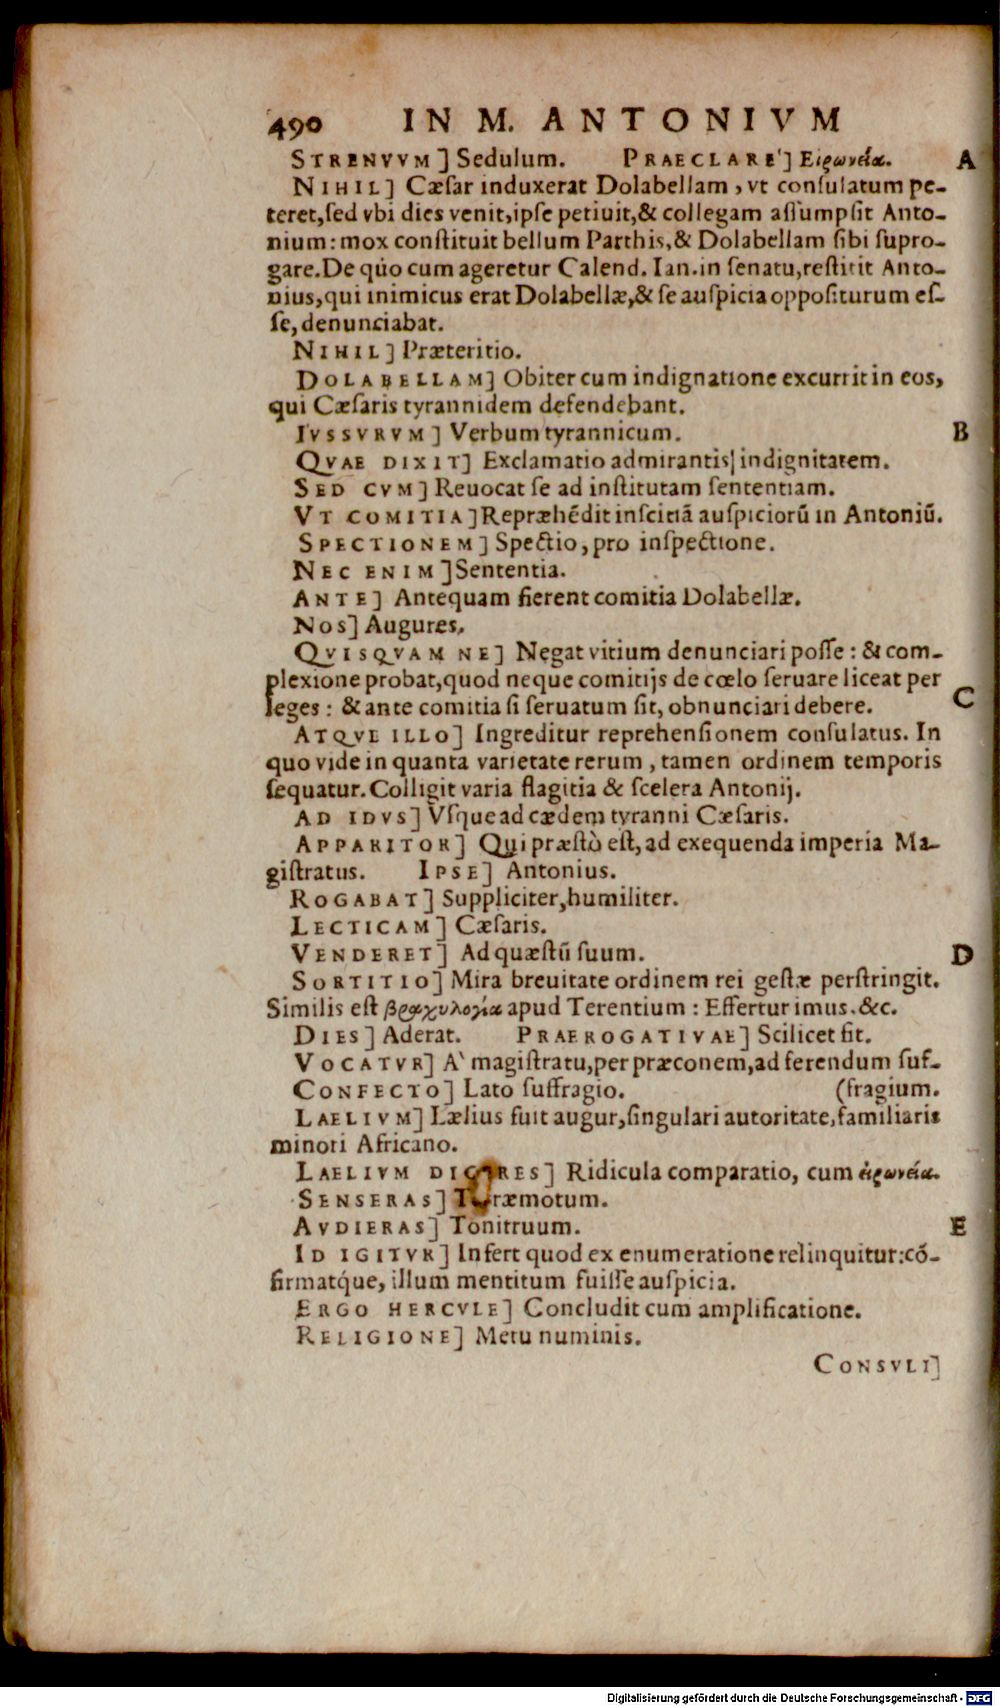 490 IN M. ANTONIVM
STRENVVM] Sedulum. PRAECLARE'] Ειρωνεία. A
NIHIL] Cæſar induxerat Dolabellam, vt conſulatum pe-
teret, ſed vbi dies venit, ipſe petiuit, & collegam aſſumpſit Anto-
nium: mox conſtituit bellum Parthis, & Dolabellam ſibi ſupro-
gare. De quo cum ageretur Calend. Ian. in ſenatu, reſtitit Anto-
nius, qui inimicus erat Dolabellæ, & ſe auſpicia oppoſiturum eſ-
ſe, denunciabat.
NIHIL] Præteritio.
DOLABELLAM] Obiter cum indignatione excurrit in eos,
qui Cæſaris tyrannidem defendebant.
IVSSVRVM] Verbum tyrannicum. B
QVAE DIXIT] Exclamatio admirantis indignitatem.
SED CVM] Reuocat ſe ad inſtitutam ſententiam.
VT COMITIA] Repræhēdit inſcitiā auſpiciorū in Antoniū.
SPECTIONEM] Spectio, pro inſpectione.
NEC ENIM] Sententia.
ANTE] Antequam fierent comitia Dolabellæ.
NOS] Augures.
QVISQVAM NE] Negat vitium denunciari poſſe: & com-
plexione probat, quod neque comitijs de cœlo ſeruare liceat per C
leges: & ante comitia ſi ſeruatum ſit, obnunciari debere.
ATQVE ILLO] Ingreditur reprehenſionem conſulatus. In
quo vide in quanta varietate rerum, tamen ordinem temporis
ſequatur. Colligit varia flagitia & ſcelera Antonij.
AD IDVS] Vſque ad cædem tyranni Cæſaris.
APPARITOR] Qui præſtò eſt, ad exequenda imperia Ma-
giſtratus. IPSE] Antonius.
ROGABAT] Suppliciter, humiliter.
LECTICAM] Cæſaris.
VENDERET] Ad quæſtū ſuum. D
SORTITIO] Mira breuitate ordinem rei geſtæ perſtringit.
Similis eſt βραχυλογία apud Terentium: Effertur imus. &c.
DIES] Aderat. PRAEROGATIVAE] Scilicet fit.
VOCATVR] A` magiſtratu, per præconem, ad ferendum ſuf-
CONFECTO] Lato ſuffragio. (fragium.
LAELIVM] Lælius fuit augur, ſingulari autoritate, familiaris
minori Africano.
LAELIVM DICERES] Ridicula comparatio, cum εἰρωνεία.
SENSERAS] Terræmotum.
AVDIERAS] Tonitruum. E
ID IGITVR] Infert quod ex enumeratione relinquitur: cō-
firmatq́ue, illum mentitum fuiſſe auſpicia.
ERGO HERCVLE] Concludit cum amplificatione.
RELIGIONE] Metu numinis.
CONSVLI]
Digitalisierung gefördert durch die Deutsche Forschungsgemeinschaft - DFG